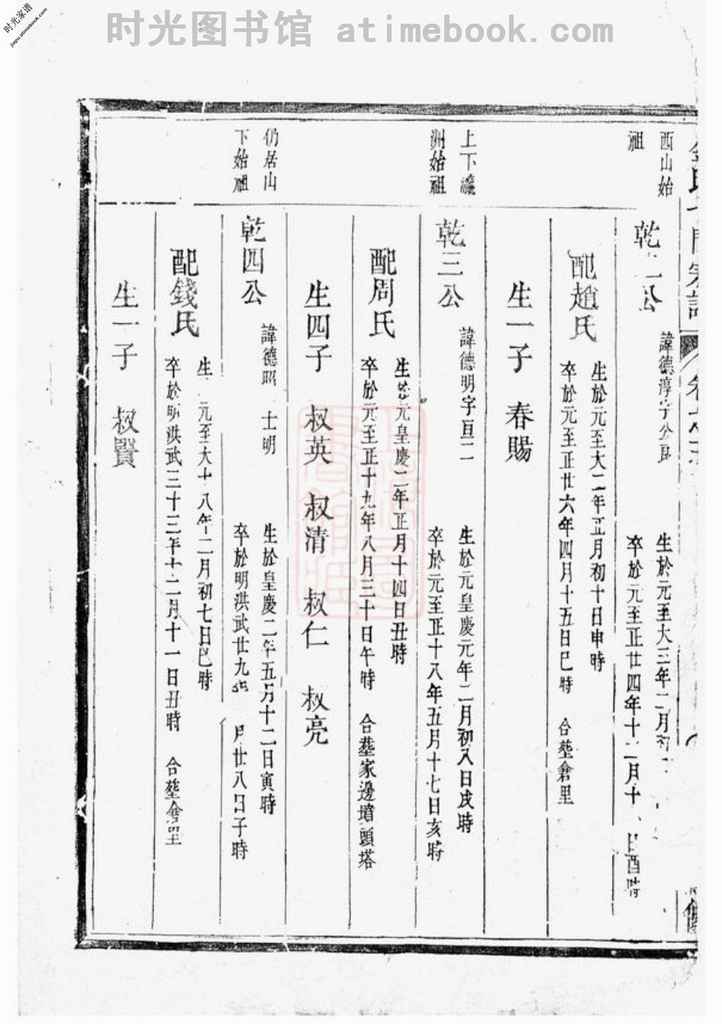 时光图书馆 atimebook.com
时光家谱
jiapu.atimebook.com
西山始
祖
乾二公
諱德淳字公
生於元至大三年二月初
卒於元至正廿四年十二月十 日酉時
配趙氏
生於元至大二年正月初十日申時
卒於元至正廿六年四月十五日巳時 合塟倉里
生一子 春賜
上下
洲始祖
乾三公
諱德明字亘二
生於元皇慶元年二月初八日戌時
卒於元至正十八年五月十七日亥時
配周氏
生於元皇慶二年正月十四日丑時
卒於元至正十九年八月三十日午時 合塟家邊墳頭塔
生四子 叔英 叔清 叔仁 叔亮
仍居山
下始祖
乾四公
諱德昭 士明
生於皇慶二年五月十二日寅時
卒於明洪武廿九年 月廿八日子時
配錢氏
生 元至大十八年二月初七日巳時
卒於明洪武三十三年十二月十一日丑時 合塟倉里
生一子 叔賢